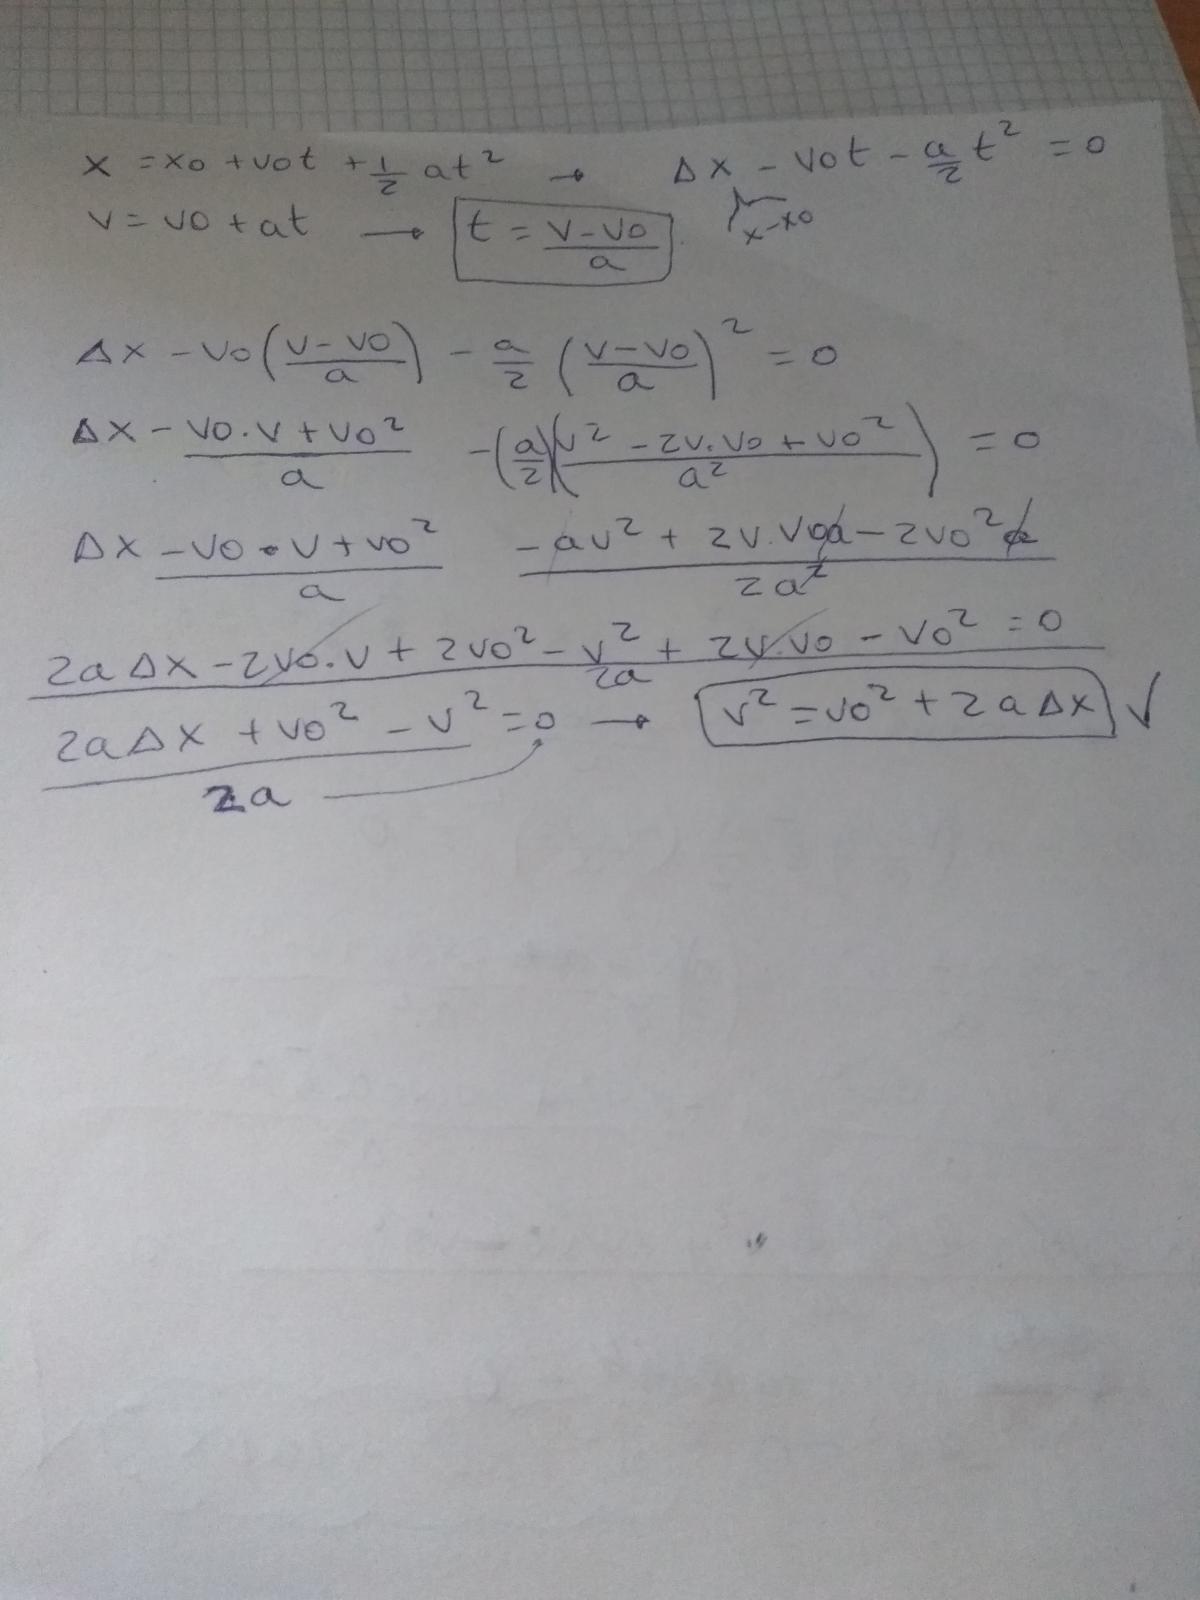 x = x0 + v0t + 1/2 at² → Δx - v0t - a/2 t² = 0
x-x0
v = v0 + at → t = (v-v0)/a
Δx - v0 ((v-v0)/a) - a/2 ((v-v0)/a)² = 0
Δx (-v0.v + v0²)/a - (a/2)((v² - 2v.v0 + v0²)/a²) = 0
Δx (-v0.v + v0²)/a (-av² + 2v.v0a - 2v0²a)/2a²
(2aΔx - 2v0.v + 2v0² - v² + 2v.v0 - v0²)/2a = 0
(2aΔx + v0² - v²)/2a = 0 → v² = v0² + 2aΔx √